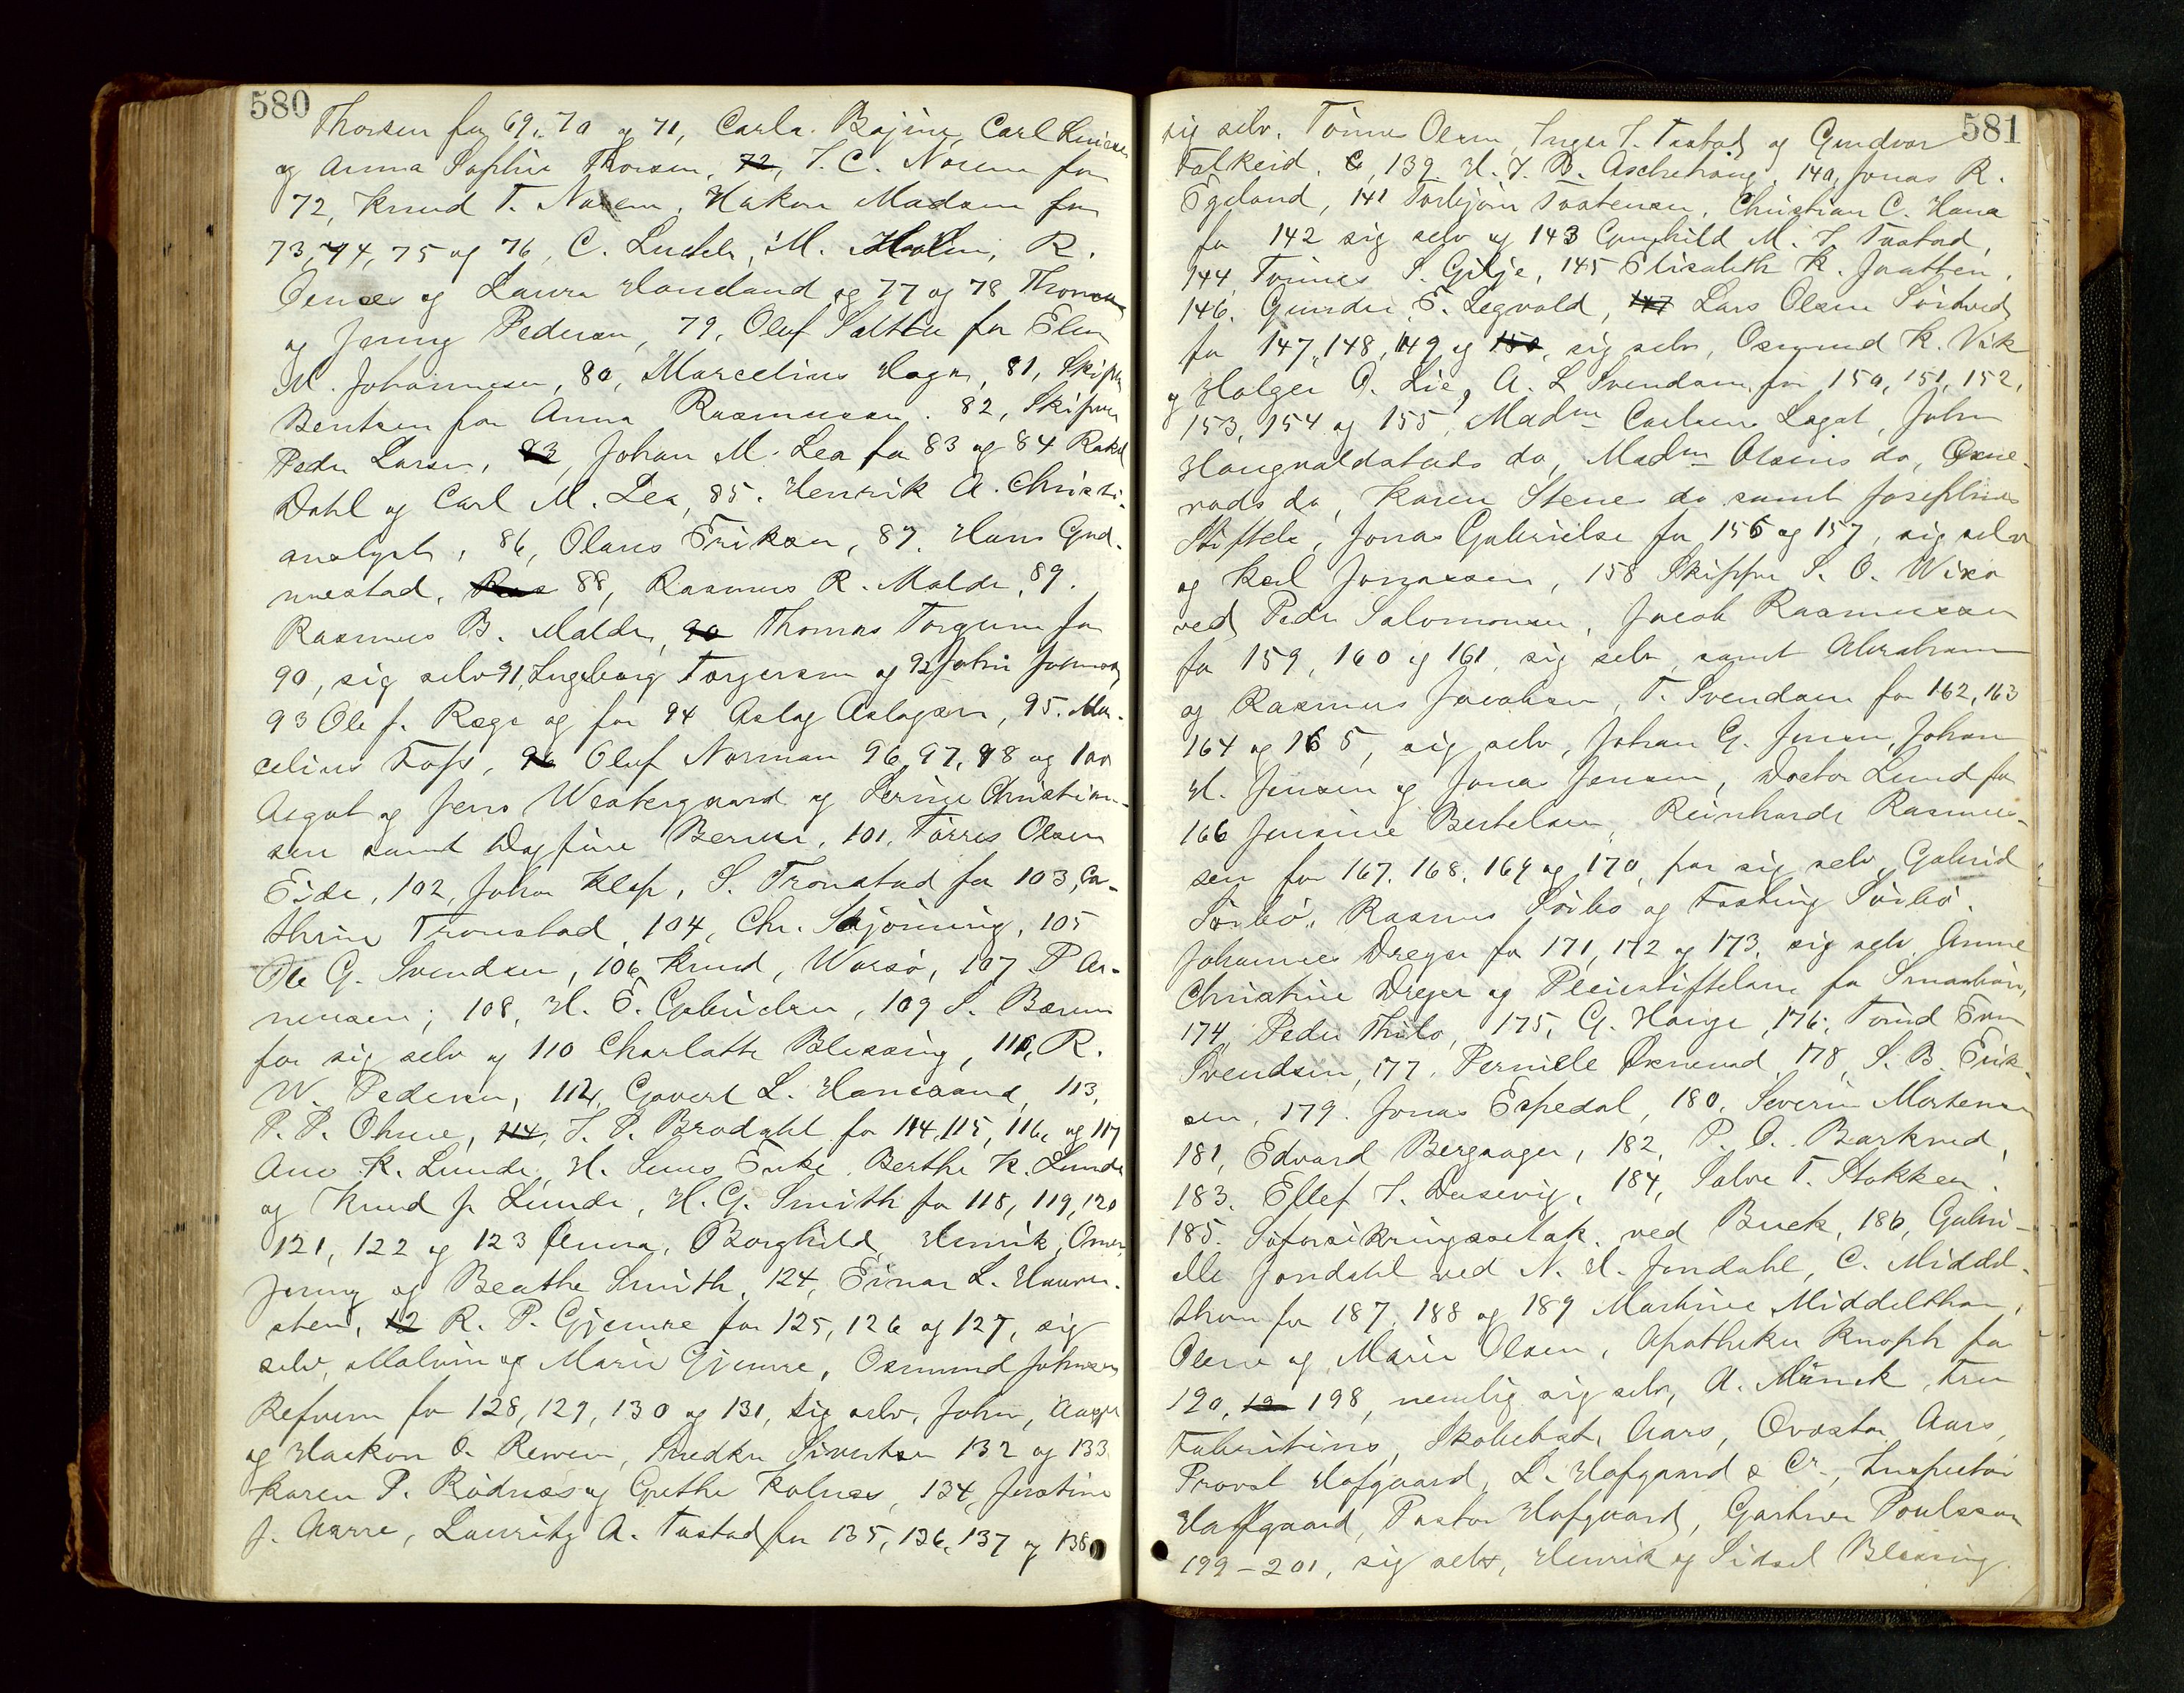 580
Thorsen for 69, 70 og 71, Carla Bojine, Carl
og Anna Sophie Thorsen, 72, T. C. Norem for
72, Knud T. Norem, Hakon Madsen for
73, 74, 75 og 76, C. M. Holm, R.
og Laura Haueland og 77 og 78
og Jenny Pedersen, 79, Oluf for Elen
M. Johannesen, 80, Marcelius Hagen, 81, Skipper
Bentsen for Anna Rasmussen. 82, Skipper
Peder Larsen, 83, Johan M. Lea for 83 og 84 Rakel
Dahl og Carl M. Lea, 85. Henrik A. Christi-
anslyst, 86, Olaus Eriksen, 87, Hans Gud-
mestad, Ras 88, Rasmus R. Malde, 89.
Rasmus B. Malde, 90 Thomas Torgersen for
90, sig selv 91, Ingeborg Torgersen og 92 John Johnsen
93 Ole J. Rege og for 94 Aslag Aslagsen, 95. Mar-
celius Foss, 96 Oluf Norman 96, 97, 98 og 100
August og Jens Westergaard og Serine Christian-
sen samt Dagfine Berner, 101, Törres Olsen
Eide, 102, Johan Klep, S. Tronstad for 103, Ca-
thrine Tronstad, 104, Chr. Skjörning, 105
Ole G. Svendsen, 106 Knud, Warsö, 107 P Ar-
nensen; 108, H. E. Gabrielsen, 109 S. Barum
for sig selv og 110 Charlotte Blessing, 111, R.
W. Pedersen, 112, Govert L. Hansaand, 113,
P. P. Ohme, 114, J. P. Brodahl for 114, 115, 116, og 117
Ane K. Lunde, H. Enke, Berthe K. Lunde
og Knud J. Lunde, H. G. Smith for 118, 119, 120
121, 122 og 123 Anna, Borghild, Henrik,
Jenny og Beathe Smith, 124, Einar L. Hauen-
sten, 12 R. P. Gjemre for 125, 126 og 127, sig
selv, Malvin og Marie Gjemre, Osmund Johnsen
Refvem for 128, 129, 130 og 131, sig selv, John,
og Haakon O. Revem, Snedker Sivertsen 132 og 133
Karen P. Rödnæs og Grethe Kolnes, 134, Justine
J. Aarre, Lauritz A. Tastad for 135, 136, 137 og 138
581
sig selv. Tönnes Olsen, Inger T. Tastad og Gundvor
Falkeid. 139 H. J. B. Aschehoug. 140, Jonas R.
Egeland, 141 Torbjörn Tostensen, Christian C. Hana
for 142 sig selv og 143 Gunhild M. T. Tastad,
144, Tönnes S. Gilje, 145 Elisabeth K. Jaatten,
146. Gunder E. Segvold, 147 Lars Olsen
for 147, 148, 149 og 150, sig selv, Osmund K. Vik
og Holger O. Lie, A. L Svendsen for 150, 151, 152,
153, 154 og 155, Madm Carlsens Legat, John
Haugvaldstads do, Madm Olsens do, Oxne-
vads do, Karen Stenes do samt Josephines
Stiftelse, Jonas Gabrielsen for 156 og 157, sig selv
og Karl Jonassen, 158 Skipper S. O. Wixø
ved Peder Salomonsen, Jacob Rasmussen
for 159, 160 og 161, sig selv, samt Abraham
og Rasmus Jacobsen, T. Svendsen for 162, 163
164 og 165, sig selv, Johan G. Jensen, Johan
H. Jensen og Jonas Jensen, Doctor Lund for
166 Jensine Bertelsen, Reinhardt Rasmus-
sen for 167, 168, 169 og 170, for sig selv, Gabriel
Sörbö, Rasmus Sörbö og Tasting Sörbö.
Johannes Dreyer for 171, 172 og 173, sig selv Anne
Christine Dreyer og Pleiestiftelsen for Smaabörn,
174, Peder Thilo, 175, G. Hauge, 176,
Svendsen, 177, Pernille Oxnevad, 178, S. B. Erik-
sen, 179. Jonas Espedal, 180, Severin Mortensen
181, Edvard Bergsager, 182, P. O. Barkved,
183. Ellef T. Dusevig, 184, Salve T. Stokken.
185. Söforsikringsselsk. ved Buck, 186, Gabri-
elle Jondahl ved N. H. Jondahl, C. Middel-
thon for 187, 188 og 189 Martine Middelthon,
Olene og Marie Olsen, Apotheker Knoph for
190, 19 198, nemlig sig selv, A. Münck, Fru
Fabritius, Aars, Qvæstor Aars,
Provst Hofgaard, L. Hofgaard & Co., Inspector
Hofgaard, Pastor Hofgaard, Gartner Poulsson
199-201, sig selv, Henrik og Sidsel Blessing.